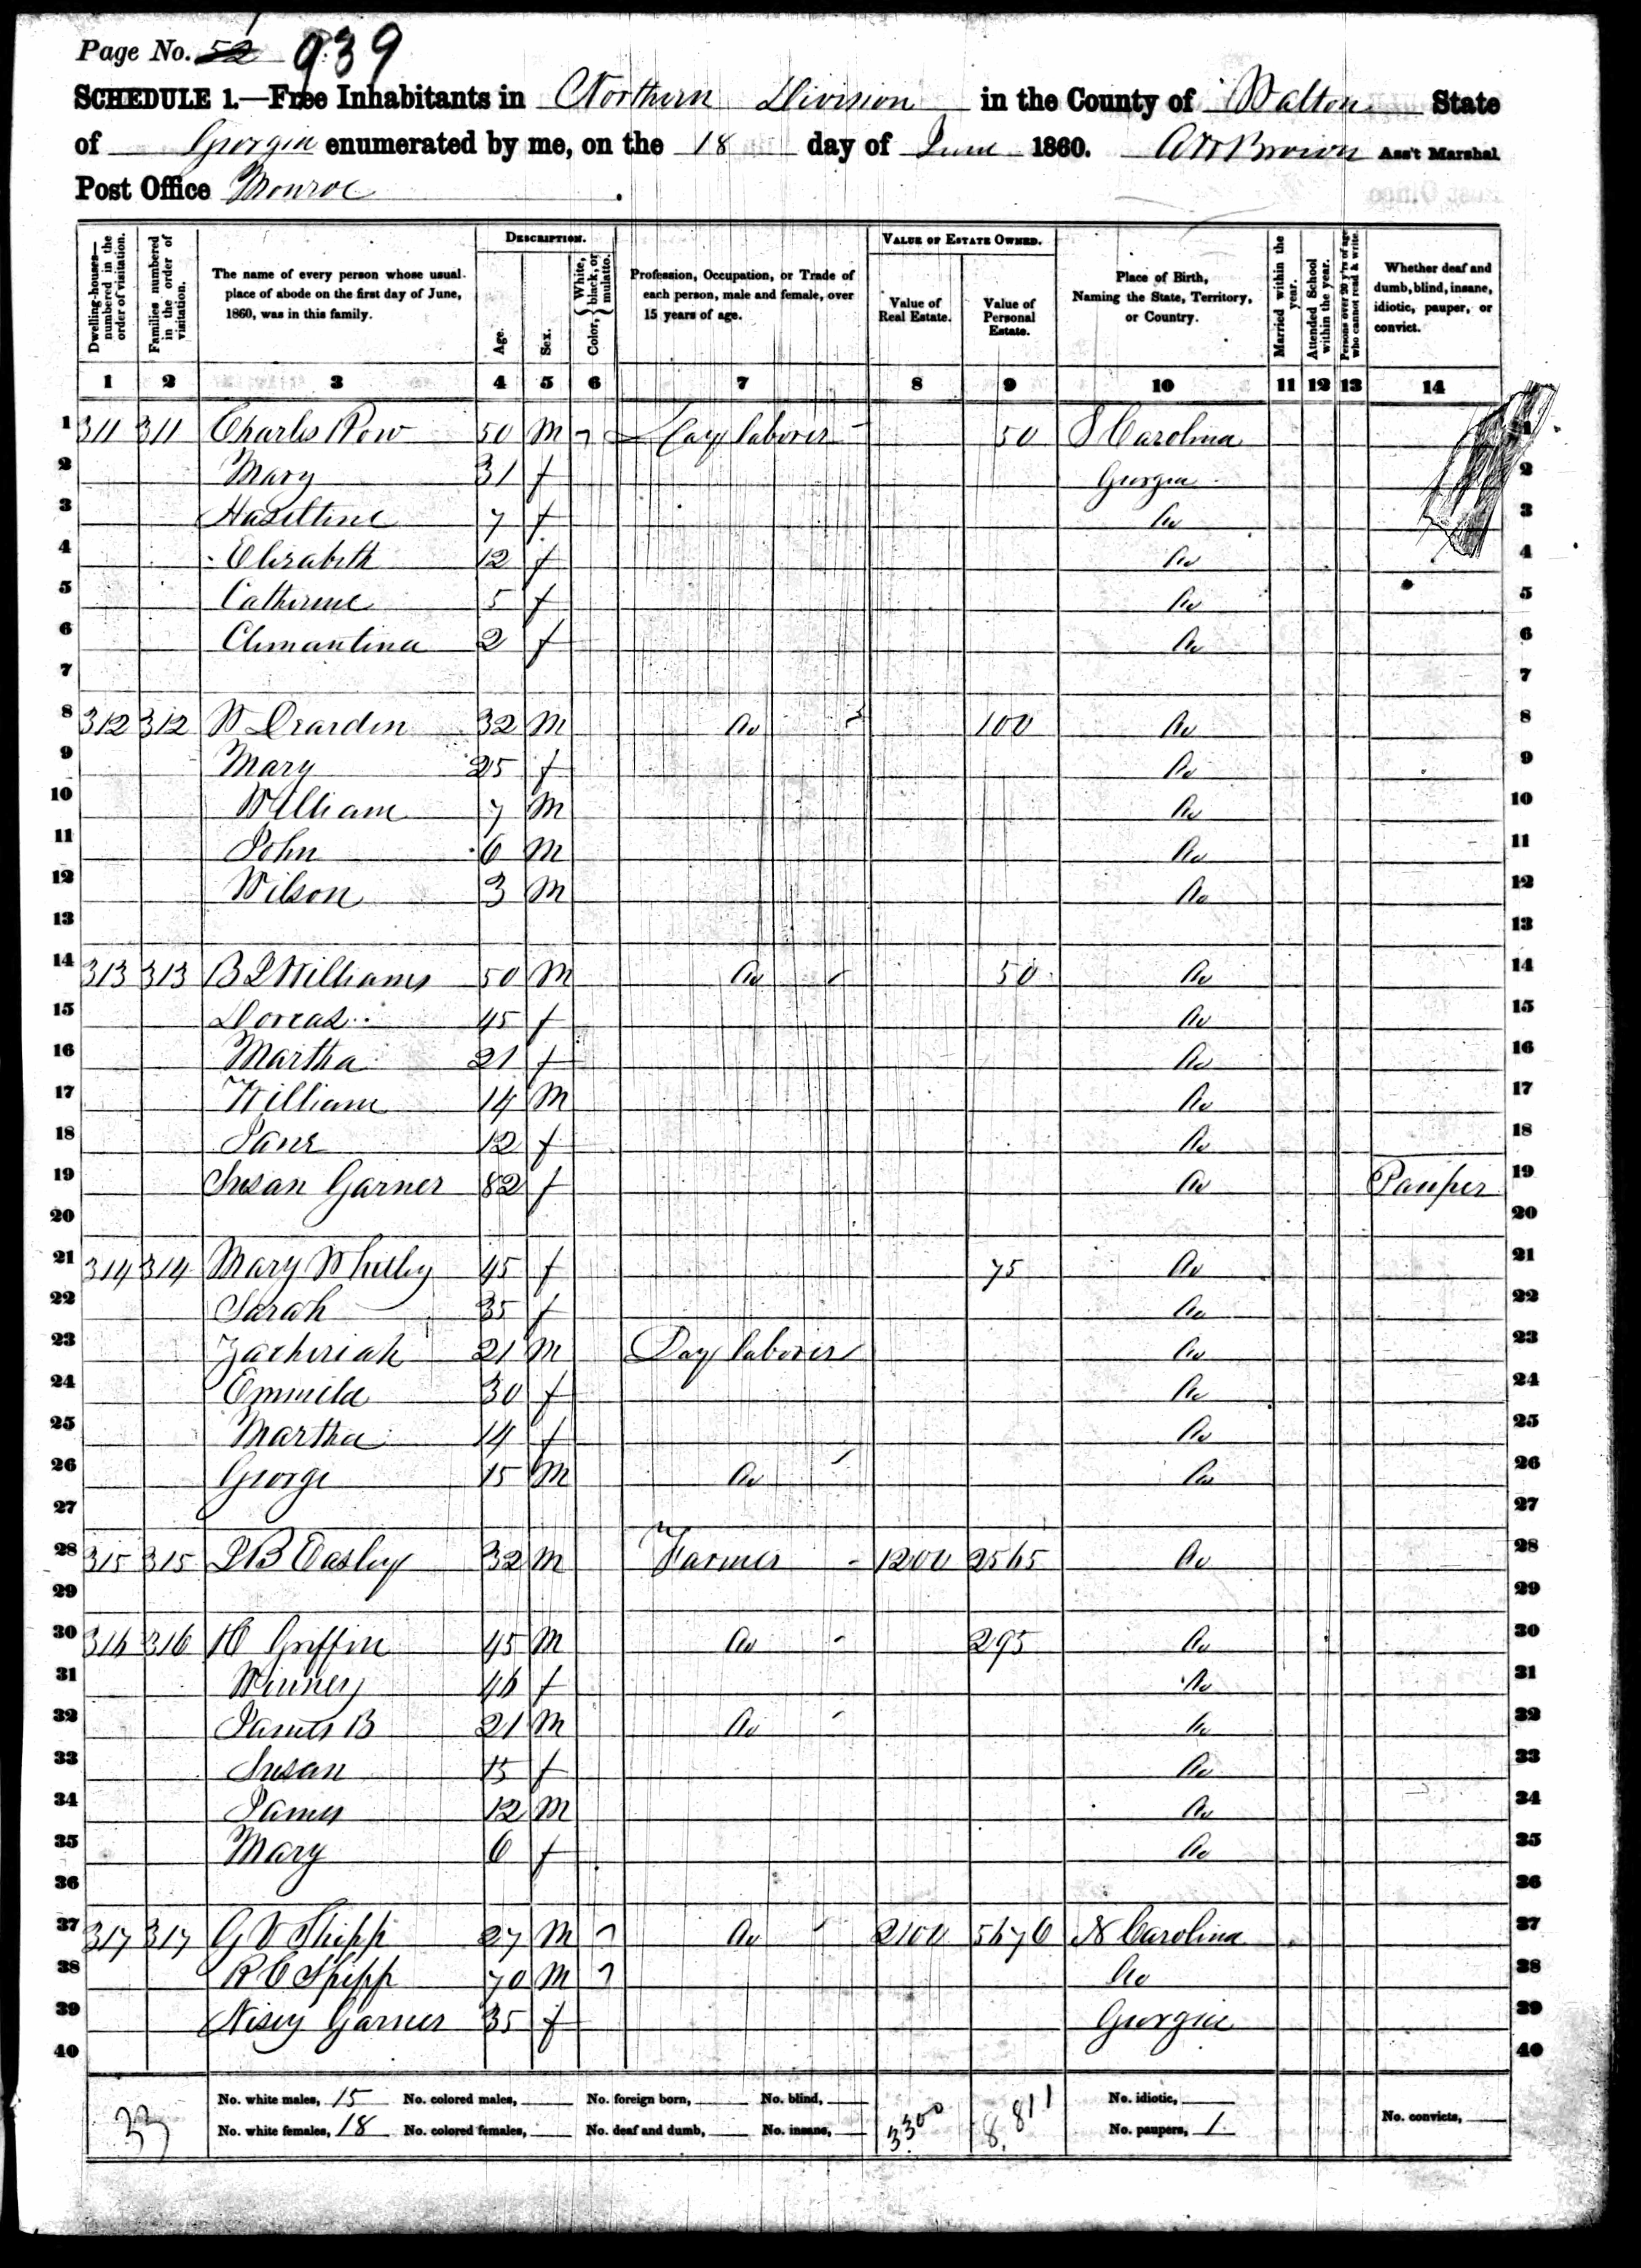 Page No. 52 939
SCHEDULE 1.—Free Inhabitants in Northern Division in the County of Walton State
of Georgia enumerated by me, on the 18 day of June 1860. Ass't Marshal
Post Office Monroe
DESCRIPTION. VALUE OF ESTATE OWNED.
Dwelling-houses—numbered in the order of visitation.
Families numbered in the order of visitation.
The name of every person whose usual place of abode on the first day of June, 1860, was in this family.
Age.
Sex.
Color, { White, black, or mulatto. }
Profession, Occupation, or Trade of each person, male and female, over 15 years of age.
Value of Real Estate.
Value of Personal Estate.
Place of Birth, Naming the State, Territory, or Country.
Married within the year.
Attended School within the year.
Persons over 20 y'rs of age who cannot read & write.
Whether deaf and dumb, blind, insane, idiotic, pauper, or convict.
1 2 3 4 5 6 7 8 9 10 11 12 13 14
1 311 311 Charles 50 M Day laborer 50 S Carolina 1
2 Mary 31 f Georgia 2
3 Haseltine 7 f Do 3
4 Elizabeth 12 f Do 4
5 Catherine 5 f Do 5
6 Clemantina 2 f Do 6
7 7
8 312 312 W Dearden 32 M Do 100 Do 8
9 Mary 25 f Do 9
10 William 7 M Do 10
11 John 6 M Do 11
12 Wilson 3 M Do 12
13 13
14 313 313 Williams 50 M Do 50 Do 14
15 Dorcas 45 f Do 15
16 Martha 21 f Do 16
17 William 14 M Do 17
18 Jane 12 f Do 18
19 Susan Garner 82 f Do Pauper 19
20 20
21 314 314 Mary Whitley 45 f 75 Do 21
22 Sarah 35 f Do 22
23 Zacheriah 21 M Day laborer Do 23
24 30 f Do 24
25 Martha 14 f Do 25
26 George 15 M Do Do 26
27 27
28 315 315 Easley 32 M Farmer 1200 2565 Do 28
29 29
30 316 316 H Griffin 45 M Do 295 Do 30
31 Winney 46 f Do 31
32 James B 21 M Do Do 32
33 Susan 15 f Do 33
34 James 12 M Do 34
35 Mary 6 f Do 35
36 36
37 317 317 G V Shipp 27 M Do 2100 5676 N Carolina 37
38 R C Shipp 70 M Do 38
39 Garner 35 f Georgia 39
40 40
33 No. white males, 15 No. colored males, No. foreign born, No. blind, 3300 8,811 No. idiotic,
No. white females, 18 No. colored females, No. deaf and dumb, No. insane, No. paupers, 1. No. convicts,